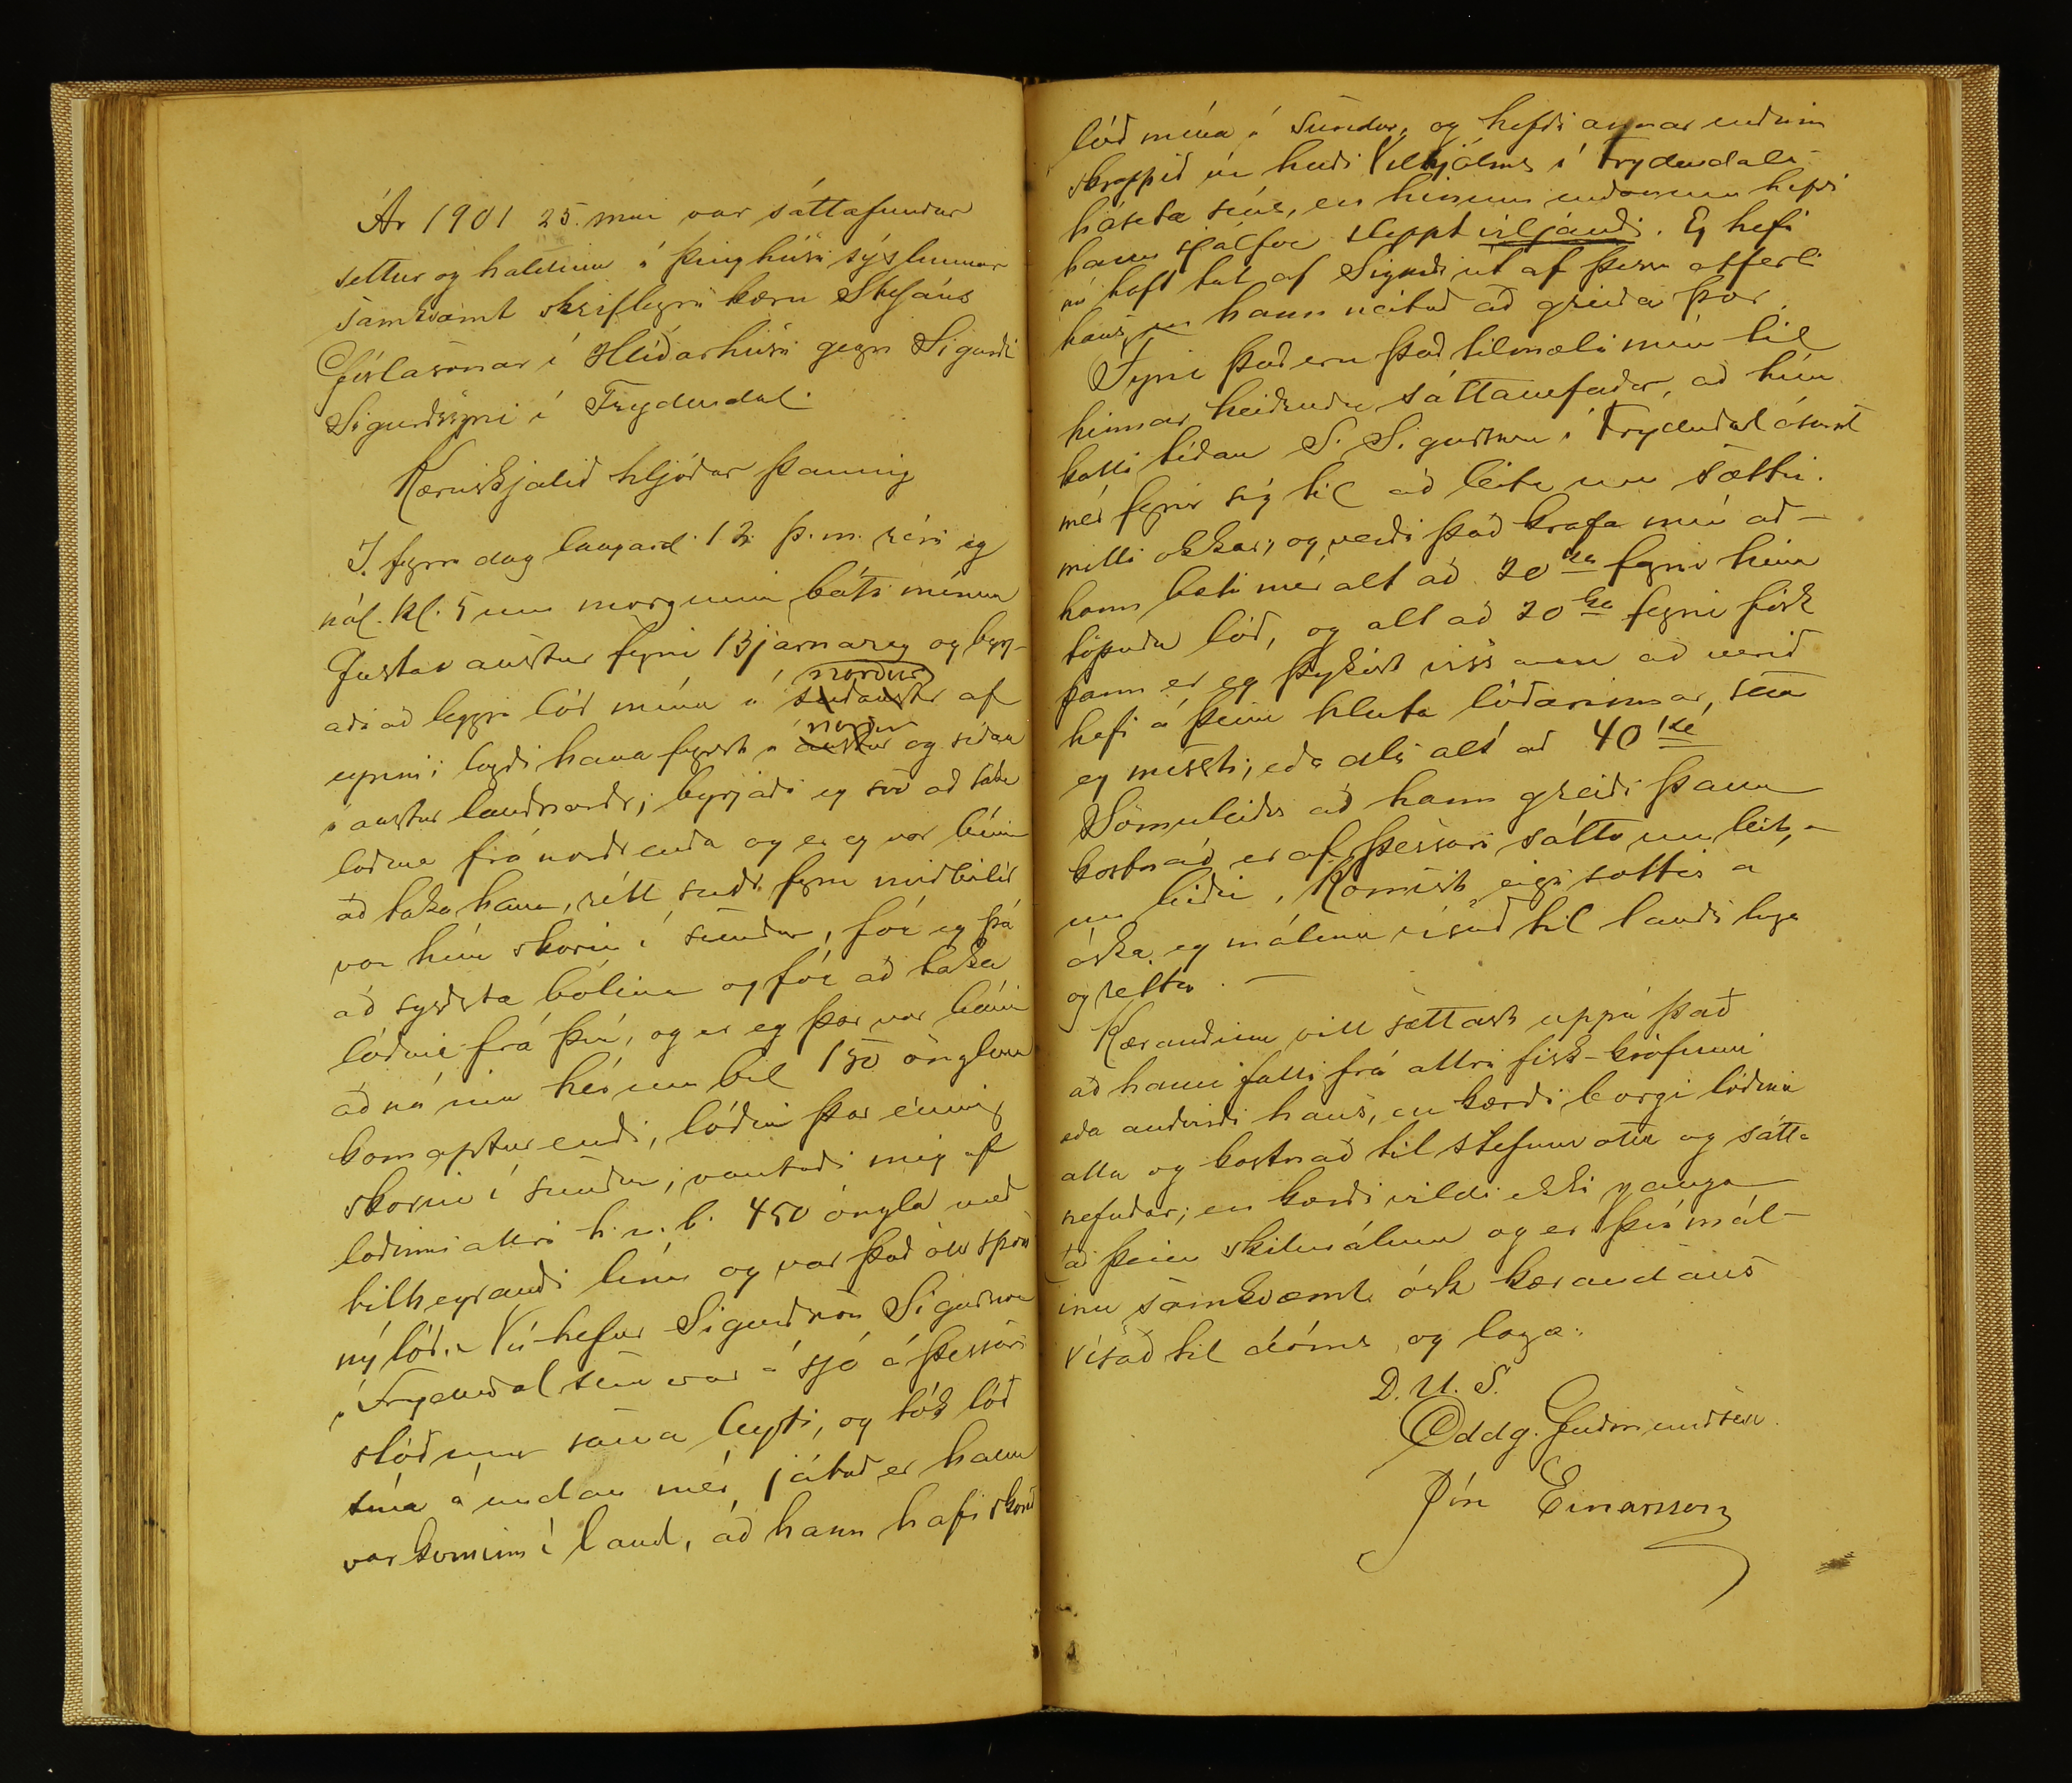 Ár 1901 25. mai var sáttafundur
settur og haldinn í þinghúsi sýslunnar
samkvæmt skriflegri kæru Stefáns
Gíslasonar í Hlíðarhúsi gegn Sigurði
Sigurðssyni í Frydendal.
Kæruskjalið hljóðar þannig
Í fyrra dag laugard. 12. þ.m. réri eg
nál. kl. 5 um morguninn báti mínum
Gustav austur fyrir Bjarnarey og byrj-
norður
aði að leggja lóð mína í suðaustr af
norður
eynni; lagði hana fyrst í austur og síðan
í austur landnorðr; byrjaði eg svo að taka
lóðina frá norðrenda og er eg var búinn
að taka hana, rétt suðr fyrir miðbólið
var hún skorin í sundur, fór eg þá
að syðsta bólinu og fór að taka
lóðina frá því, og er eg þar var búinn
að ná inn hér um bil 150 önglum
kom aptur endi, lóðin þar einnig
skorin í sundur; vantaði mig af
lóðinni allri h.u.b. 450 öngla með
tilheyrandi línu og var það öll spón
ný lóð. Nú hefur Sigurðson Sigurðsson
í Frydendal sem var á sjó á þessum
slóðum sama leyti, og tók lóð
sína á undan mér játað er hann
var kominn í land, að hann hafi skorið
lóð mína í sundur, og hefði annar endinn
skroppið úr hendi Vilhjálms í Frydendali
háseta síns, en hinum endanum hefði
hann sjálfur sleppt viljandi. Eg hefi
nú haft tal af Sigurði út af þessu atferli
hans, en hann neitað að greiða þar
Fyrir það eru það tilmæli mín til
hinnar heiðruðu sáttanefndar, að hún
kalli téðan S. Sigurðsson í Frydendal ásamt
mér fyrir sig til að leita um sættir
milli okkar, og verði það krafa mín að
hann bæti mér alt að 20 kr fyrir hina
töpuðu lóð, og alt að 20 kr fyrir fisk
þann er eg þykist viss um að verið
hefi á þeim hluta lóðarinnar, sem
eg missti, eða alls alt að 40 kr
Sömuleiðis að hann greiði þann
kostnað er af þessari sátta um leit-
un leiðir. Komist eigi sættir á
óska eg málinu vísað til lands laga
og réttar. —
Kærandinn vill sættast uppá það
að hann falli frá allri fisk-kröfunni
eða andvirði hans, en kærði borgi lóðina
alla og kostnað til stefnuvotta og sátta
nefndar; en kærði vildi ekki ganga
að þeim skilmálum og er því mál-
inu samkvæmt ósk kærandans
vísað til dóms og laga.
D. U. S.
Oddg. Guðmundsen.
Jón Einarsson